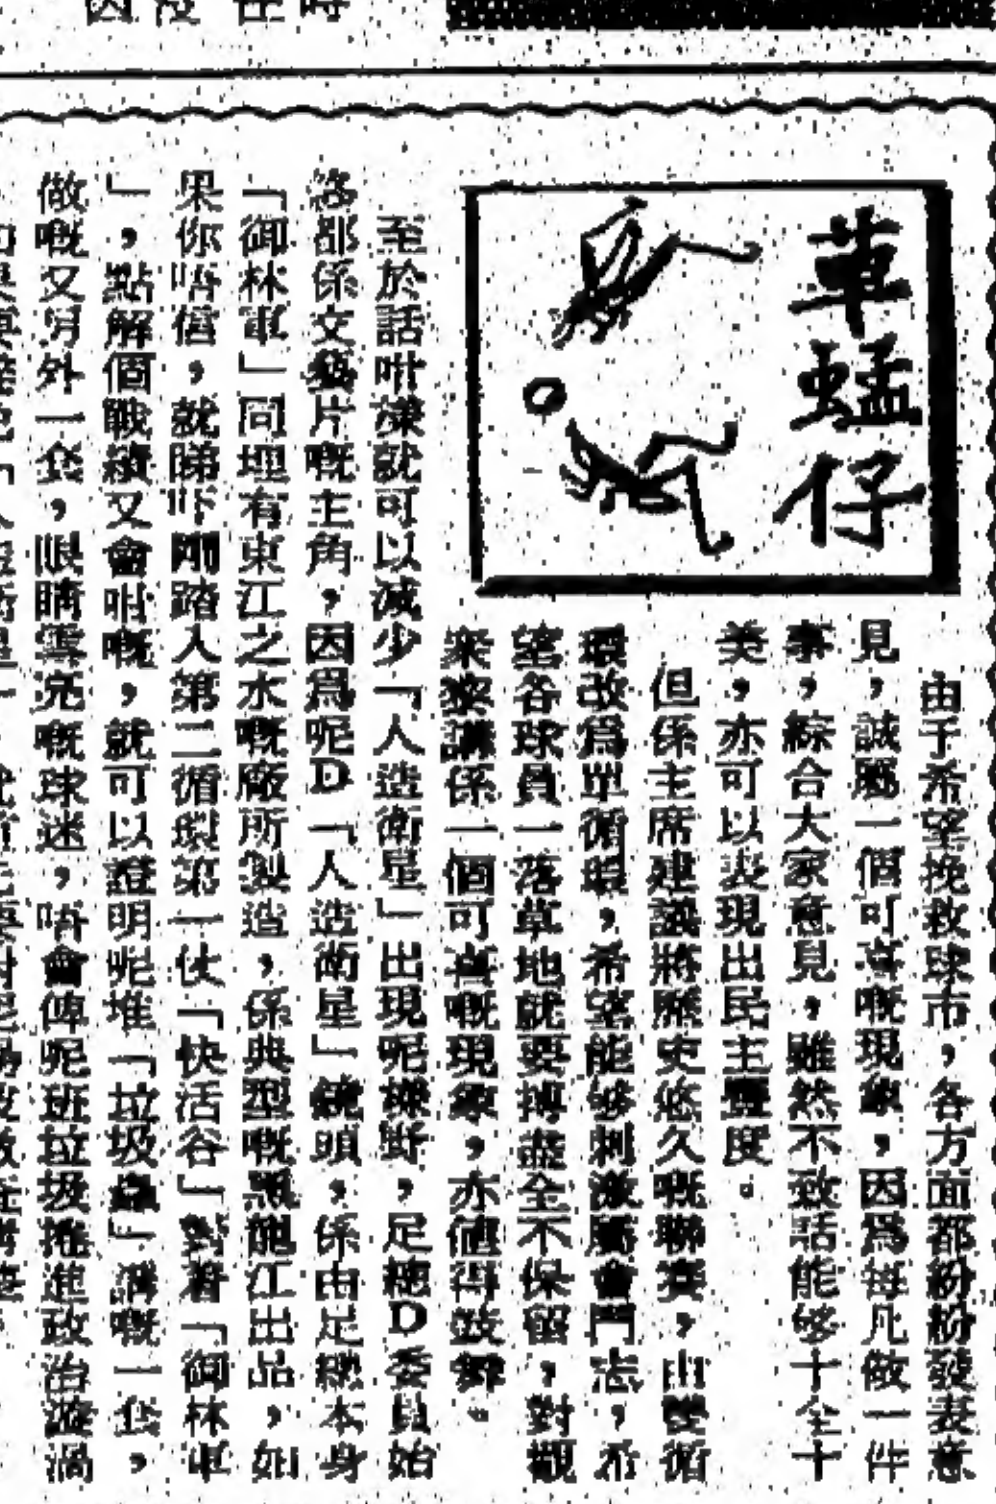 草蜢仔
由于希望挽救球市，各方面都紛紛發表意
見，誠屬一個可喜嘅現象，因爲每凡做一件
事，綜合大家意見，雖然不致話能够十全十
美，亦可以表現出民主豐度。
但係主席建議將歷史悠久嘅聯賽，由雙循
環改爲單循環，希望能够刺激屬會鬥志，希
望各球員一落草地就要搏盡全不保留，對觀
衆黎講係一個可喜嘅現象，亦值得鼓舞。
至於話咁樣就可以減少「人造衛星」出現呢樣野，足總D委員始
終都係文藝片嘅主角，因爲呢D「人造衛星」鏡頭，係由足總本身
「御林軍」同埋有東江之水嘅廠所製造，係典型嘅黑龍江出品，如
果你唔信，就睇吓剛踏入第二循環第一仗「快活谷」對着「御林軍
」，點解個戰績又會咁嘅，就可以證明呢堆「垃圾蟲」講嘅一套，
做嘅又另外一套，眼睛雪亮嘅球迷，唔會俾呢班垃圾推進政治漩渦